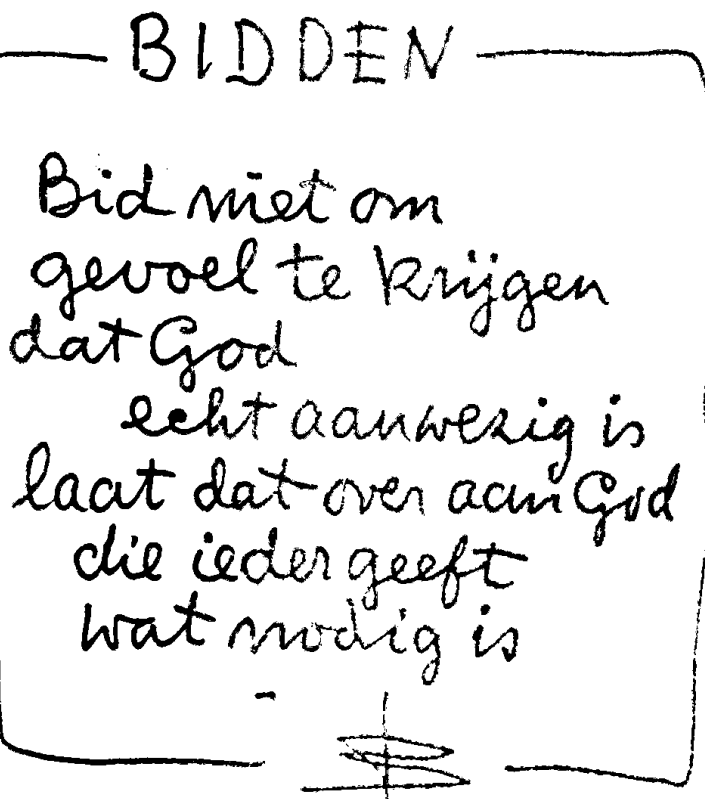 BIDDEN
Bid niet om
gevoel te krijgen
dat God
echt aanwezig is
laat dat over aan God
die ieder geeft
wat nodig is